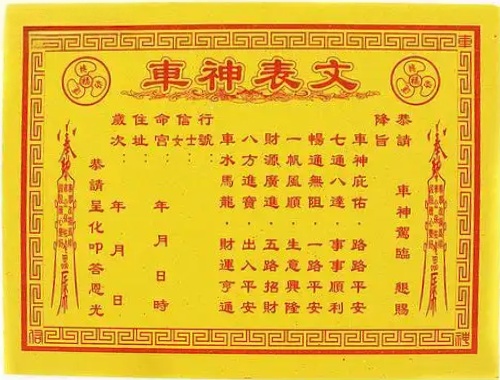 車神表文
恭請 車神駕臨 懇賜
降旨
車神庇佑·路路平安
七通八達·事事順利
暢通無阻·一路平安
一帆風順·生意興隆
財源廣進·五路招財
八方進寶·出入平安
車水馬龍·財運亨通
行號:
信士女
命宮: 年 月 日 時
住址:
歲次: 年 月 日
恭請呈化叩答恩光
車